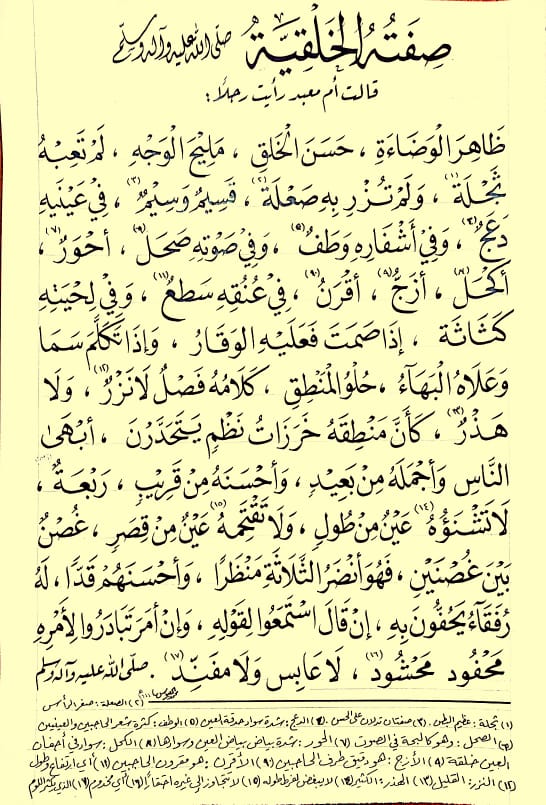 صِفَتُهُ الْخَلْقِيَّةُ صلّى الله عليه وآله وسلّم
قالت أم معبد رأيت رجلاً :
ظَاهِرَ الْوَضَاءَةِ ، حَسَنَ الْخَلْقِ ، مَلِيحَ الْوَجْهِ ، لَمْ تَعِبْهُ
ثُجْلَةٌ (١) ، وَلَمْ تُزْرِ بِهِ صَعْلَةٌ (٢) ، قَسِيمٌ وَسِيمٌ (٣) ، فِي عَيْنَيْهِ
دَعَجٌ (٤) ، وَفِي أَشْفَارِهِ وَطَفٌ (٥) ، وَفِي صَوْتِهِ صَحَلٌ (٦) ، أَحْوَرُ (٧) ،
أَكْحَلُ (٨) ، أَزَجُّ (٩) ، أَقْرَنُ (١٠) ، فِي عُنُقِهِ سَطَعٌ (١١) ، وَفِي لِحْيَتِهِ
كَثَاثَةٌ ، إِذَا صَمَتَ فَعَلَيْهِ الْوَقَارُ ، وَإِذَا تَكَلَّمَ سَمَا
وَعَلَاهُ الْبَهَاءُ ، حُلْوُ الْمَنْطِقِ ، كَلَامُهُ فَصْلٌ لَا نَزْرٌ (١٢) ، وَلَا
هَذْرٌ (١٣) ، كَأَنَّ مَنْطِقَهُ خَرَزَاتُ نَظْمٍ يَتَحَدَّرْنَ ، أَبْهَى
النَّاسِ وَأَجْمَلَهُ مِنْ بَعِيدٍ ، وَأَحْسَنَهُ مِنْ قَرِيبٍ ، رَبْعَةٌ ،
لَا تَشْنَؤُهُ (١٤) عَيْنٌ مِنْ طُولٍ ، وَلَا تَقْتَحِمُهُ (١٥) عَيْنٌ مِنْ قِصَرٍ ، غُصْنٌ
بَيْنَ غُصْنَيْنِ ، فَهُوَ أَنْضَرُ الثَّلَاثَةِ مَنْظَرًا ، وَأَحْسَنُهُمْ قَدًّا ، لَهُ
رُفَقَاءُ يَحُفُّونَ بِهِ ، إِنْ قَالَ اسْتَمَعُوا لِقَوْلِهِ ، وَإِنْ أَمَرَ تَبَادَرُوا لِأَمْرِهِ
مَحْفُودٌ مَحْشُودٌ (١٦) ، لَا عَابِسٌ وَلَا مُفَنِّدٌ (١٧) . صلّى الله عليه وآله وسلم
(٢) الصعلة : صغر الرأس
(١) ثجلة : عظيم البطن . (٣) صفتان تدلان على الحسن . (٤) الدعج : شدة سواد حدقة العين (٥) الوطف : كثرة شعر الحاجبين والعينين
(٦) الصحل : وهو كالبحة في الصوت (٧) الحور : شدة بياض بياض العين وسوادها (٨) الكحل : سواد في أجفان
العين خلقة (٩) الأزج : هو دقيق طرف الحاجبين (١٠) الأقرن : هو مقرون الحاجبين (١١) أي ارتفاع وطول
(١٢) النزر : القليل (١٣) الهذر : الكثير (١٤) لا يبغض لفرط طوله (١٥) لا تتجاوز إلى غيره احتقاراً (١٦) أي مخدوم (١٧) الذي يكثر اللوم